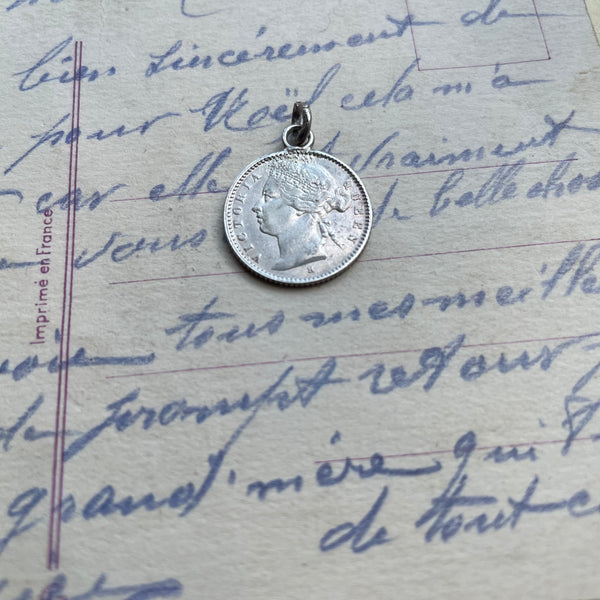 bien sincèrement de
pour Noël cela m'a
car elle est vraiment
vous de belle chos
tous mes meille
de prompt retour
grand'mère qui t
de tout c
Imprimé en France
VICTORIA QUEEN
H